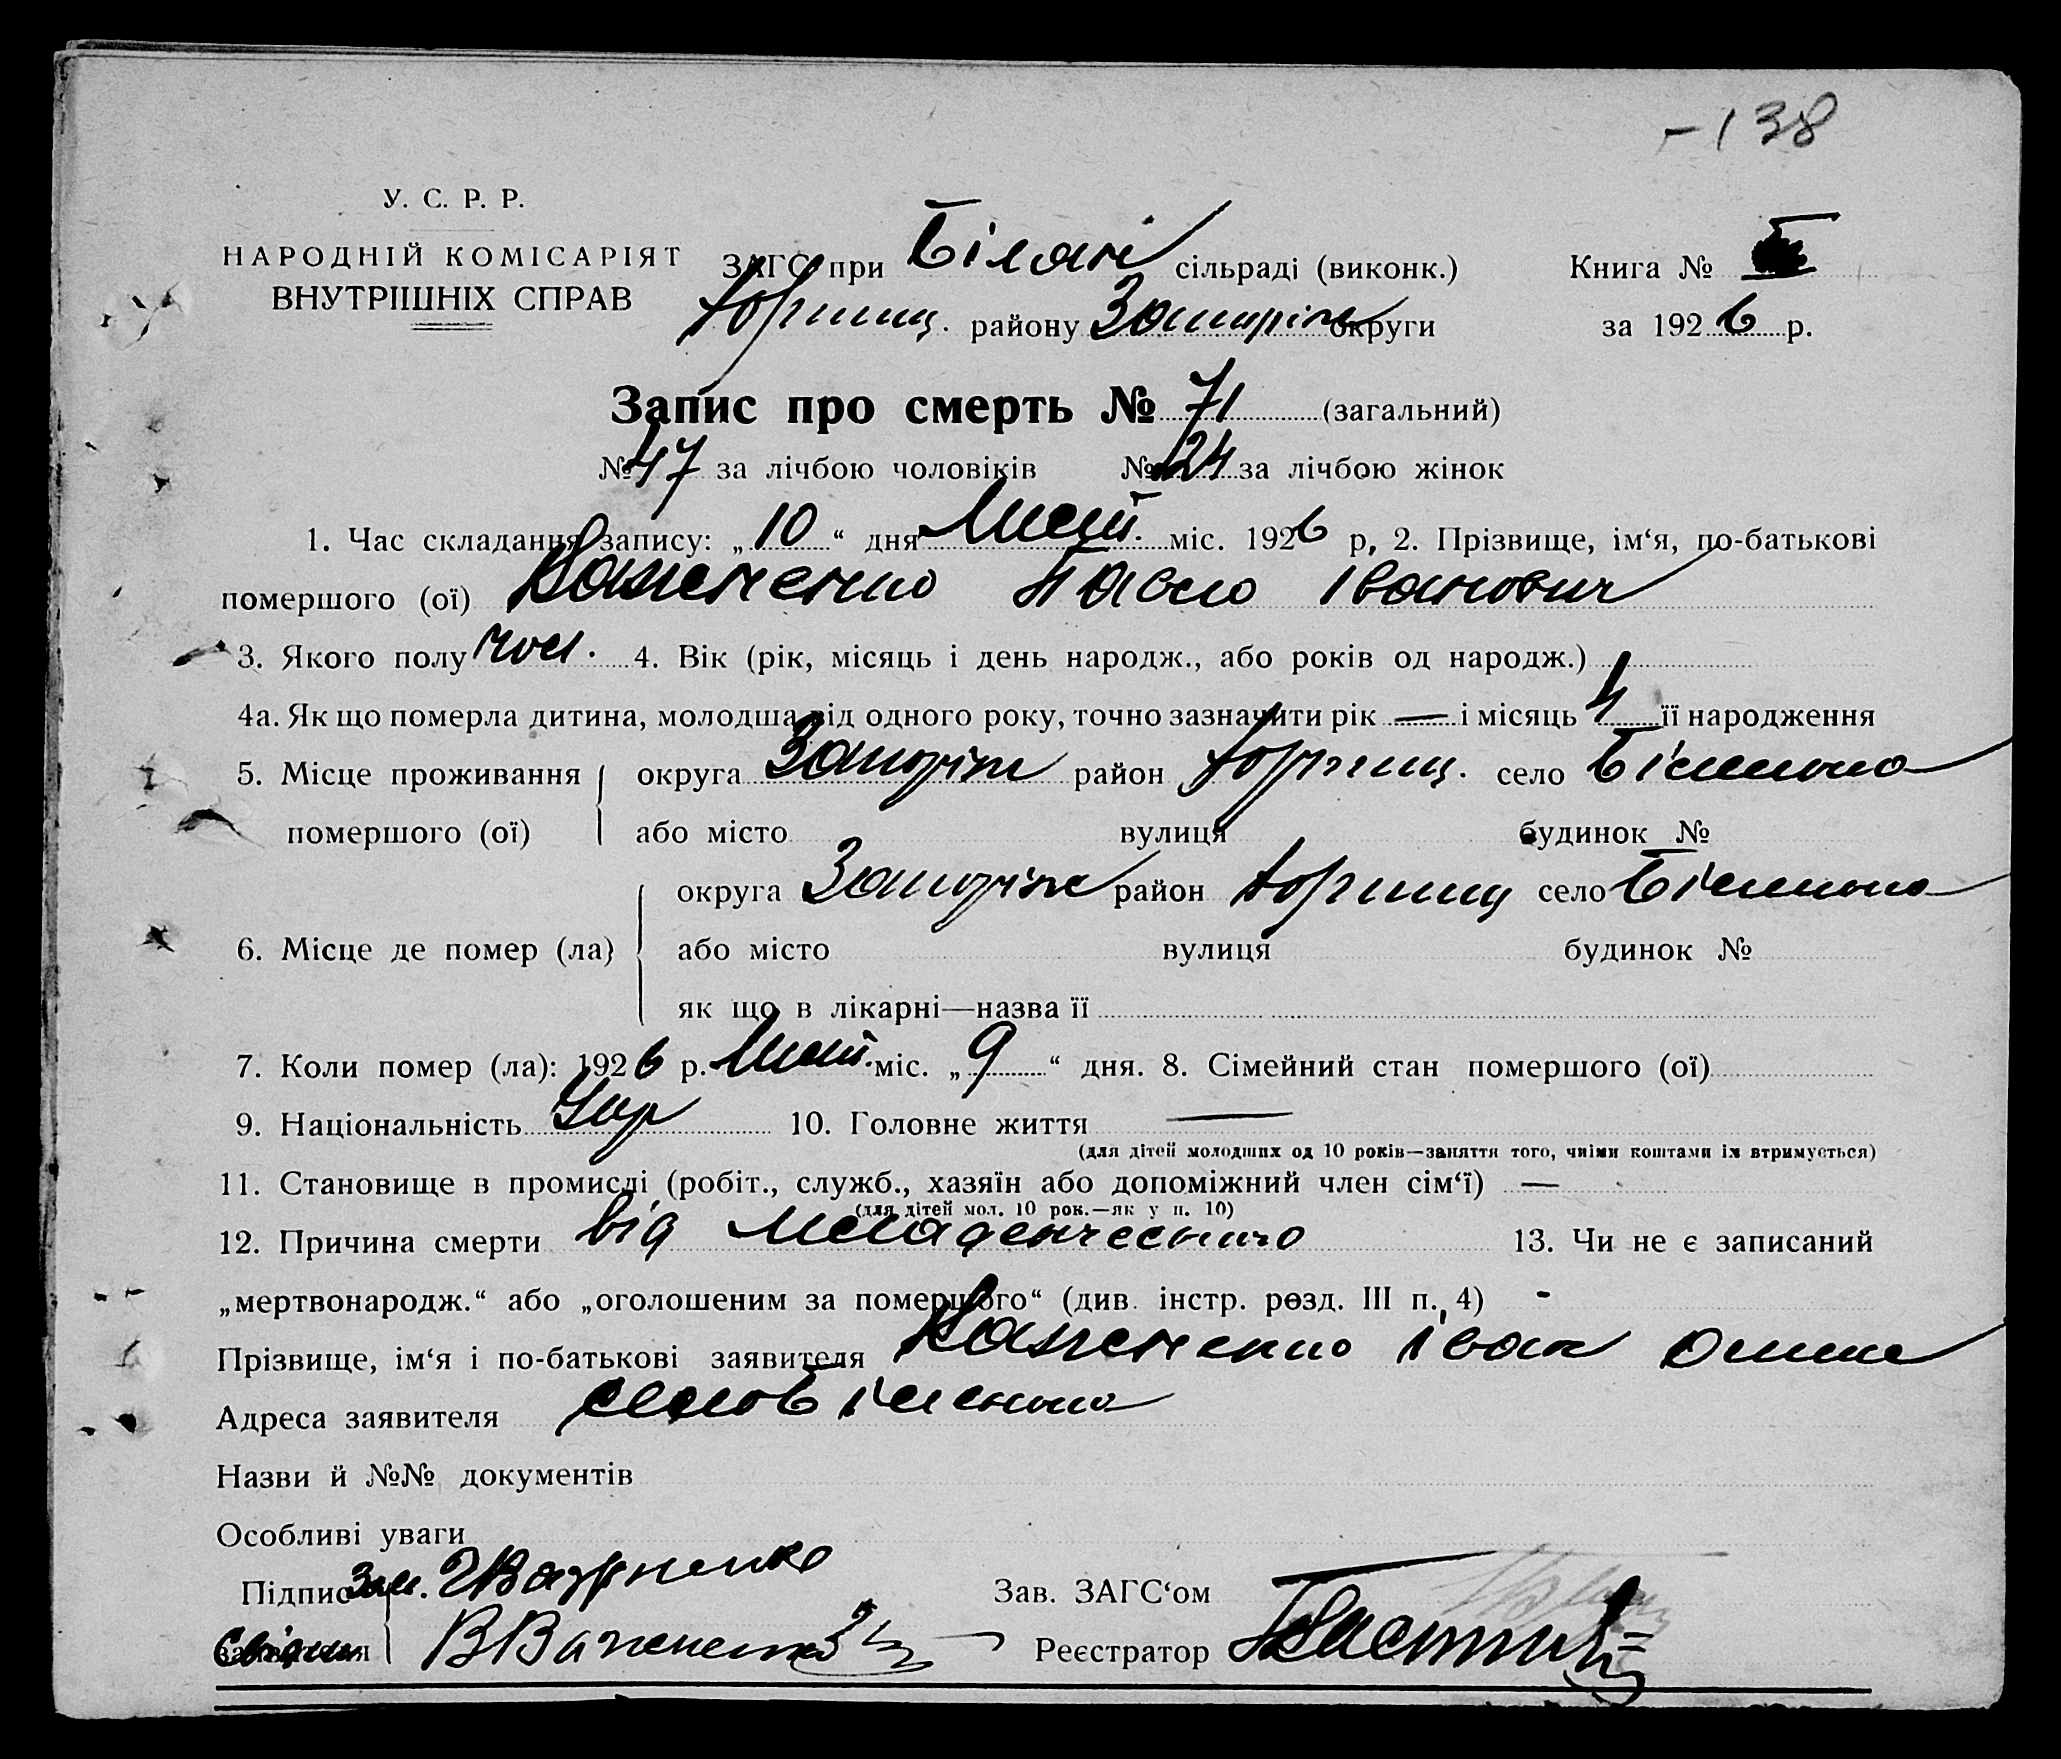 -138
У. С. Р. Р.
НАРОДНІЙ КОМІСАРІЯТ
ВНУТРІШНІХ СПРАВ
ЗАГС при сільраді (виконк.)
району Запоріж округи
Книга №
за 1926 р.
Запис про смерть № 71 (загальний)
№ 47 за лічбою чоловіків № 24 за лічбою жінок
1. Час складання запису: „10“ дня Мая міс. 1926 р, 2. Прізвище, ім‘я, по-батькові
помершого (ої) Павло Іванович
3. Якого полу чол. 4. Вік (рік, місяць і день народж., або років од народж.)
4а. Як що померла дитина, молодша від одного року, точно зазначити рік — і місяць 4 її народження
5. Місце проживання помершого (ої) округа Запоріж район село Біленька
або місто вулиця будинок №
6. Місце де помер (ла) округа Запоріж район село Біленька
або місто вулиця будинок №
як що в лікарні—назва її
7. Коли помер (ла): 1926 р. Мая міс. „9“ дня. 8. Сімейний стан помершого (ої)
9. Національність Укр 10. Головне життя —
(для дітей молодших од 10 років—заняття того, чиїми коштами їх втримується)
11. Становище в промислі (робіт., служб., хазяїн або допоміжний член сім‘ї) —
(для дітей мол. 10 рок.—як у п. 10)
12. Причина смерти від младенческого 13. Чи не є записаний
„мертвонародж.“ або „оголошеним за помершого“ (див. інстр. розд. III п. 4) -
Прізвище, ім‘я і по-батькові заявителя Іван
Адреса заявителя село Біленька
Назви й №№ документів
Особливі уваги
Підпис
заявителя
Зав. ЗАГС‘ом
Реєстратор